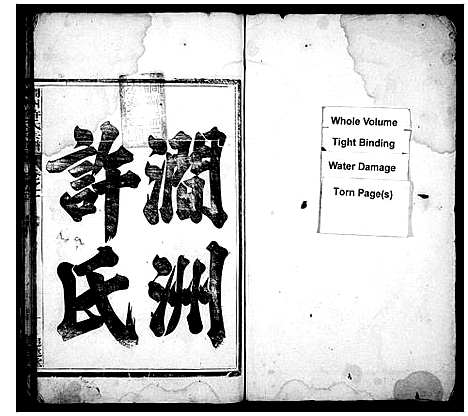 澗洲
許氏
Whole Volume
Tight Binding
Water Damage
Torn Page(s)